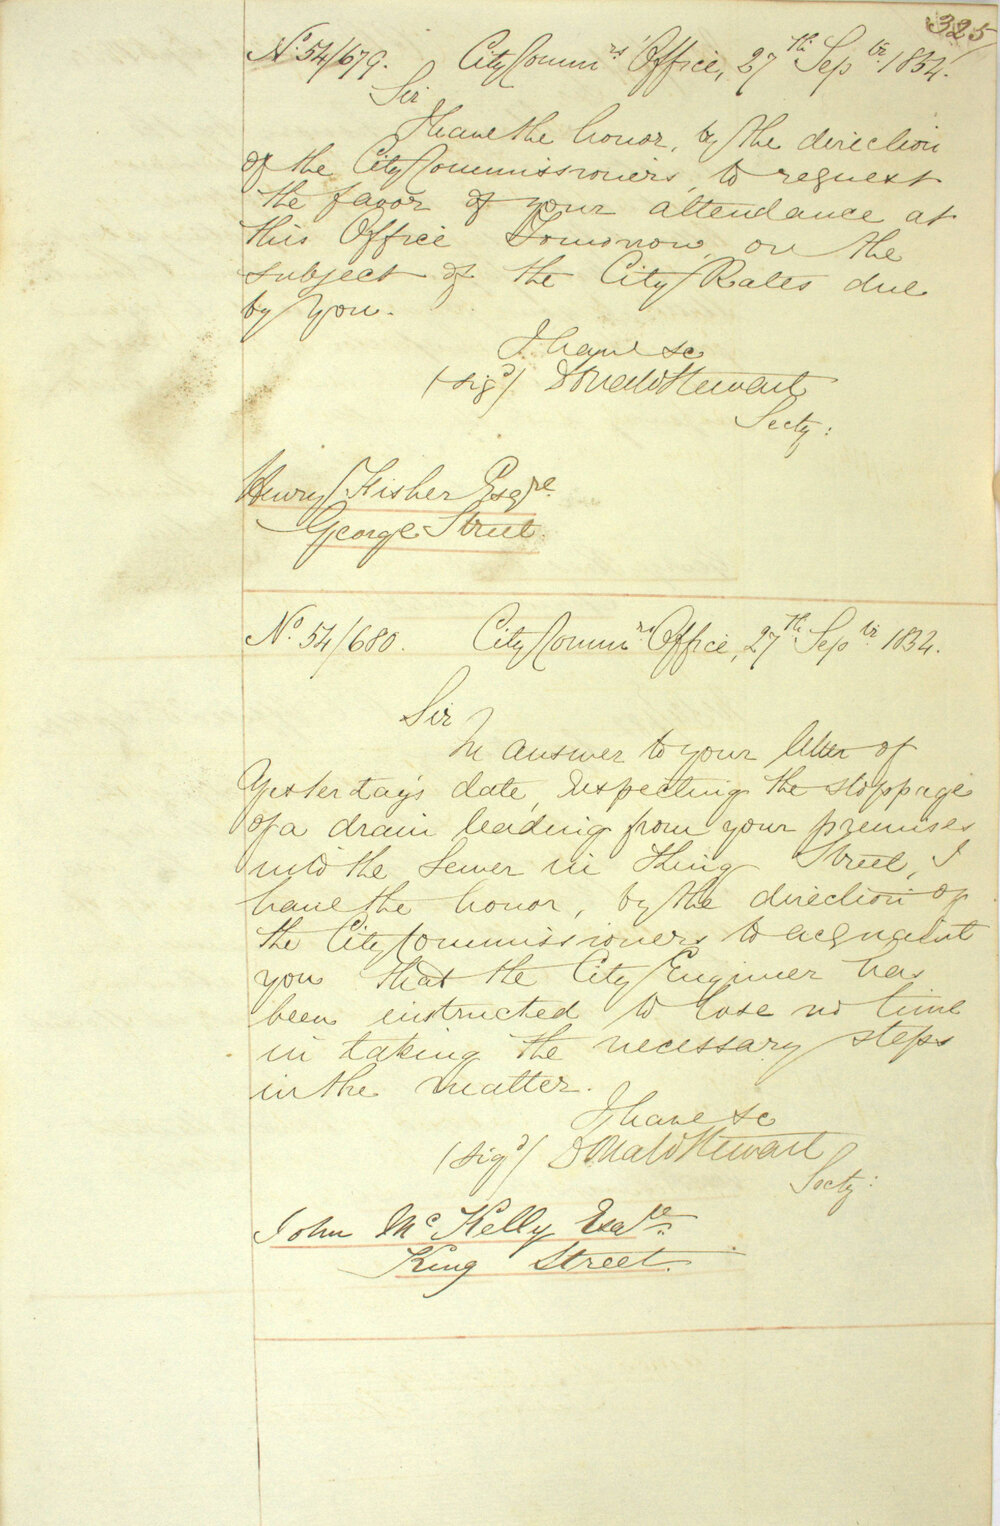 325
No. 54/679. City Commrs' Office, 27th Septr 1854.
Sir
I have the honor, by the direction
of the City Commissioners, to request
the favor of your attendance at
this Office Tomorrow, on the
subject of the City Rates due
by You.
I have &c
(sigd) Donald Stewart
Secty:
Henry Fisher Esqre.
George Street.
No. 54/680. City Commrs Office, 27th Septr 1854.
Sir
In answer to your letter of
Yesterday's date, respecting the stoppage
of a drain leading from your premises
into the Sewer in King Street, I
have the honor, by the direction of
the City Commissioners to acquaint
you that the City Engineer has
been instructed to lose no time
in taking the necessary steps
in the matter.
I have &c
(sigd) Donald Stewart
Secty:
John Mc Kelly Esqre.
King Street.